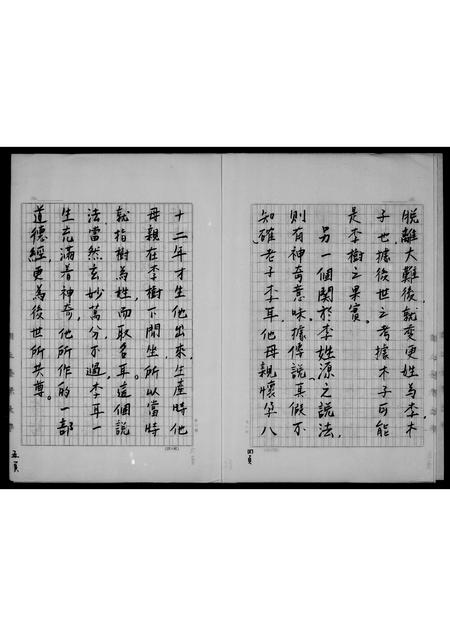 脫離大難後，就變更姓為李木
子也據後世之考據木子可能
是李樹之果實。
另一個關於李姓源之說法，
則有神奇意味據傳說真假不
知確老子李耳他母親懷孕八
四頁
十二年才生他出來，生產時他
母親在李樹下閒生所以當時
就指樹為姓而取名耳這個說
法當然玄妙萬分不過李耳一
生充滿着神奇，他所作的一部
道德經更為後世所共尊。
五頁